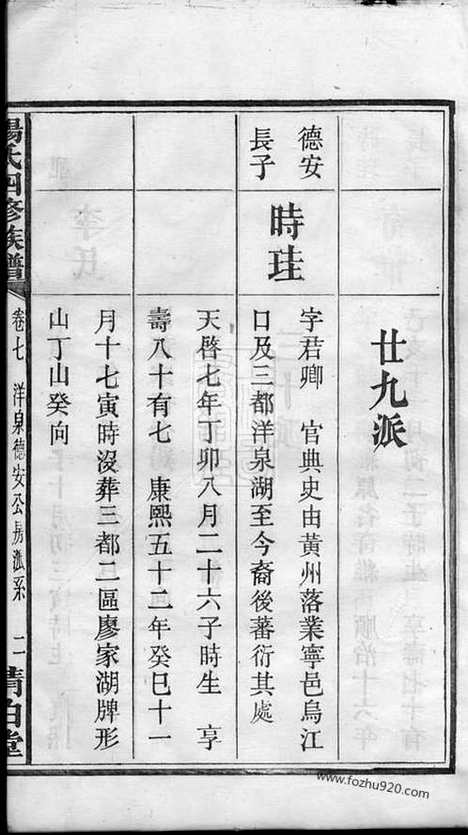 廿九派
德安
長子
時珪
字君卿　官典史由黃州落業寧邑烏江
口及三都洋泉湖至今裔後蕃衍其處
天啓七年丁卯八月二十六子時生　享
壽八十有七　康熙五十二年癸巳十一
月十七寅時沒葬三都二區廖家湖牌形
山丁山癸向
楊氏四修族譜
卷七　洋泉德安公房派系
二
清白堂
https://www.fozhu920.com/